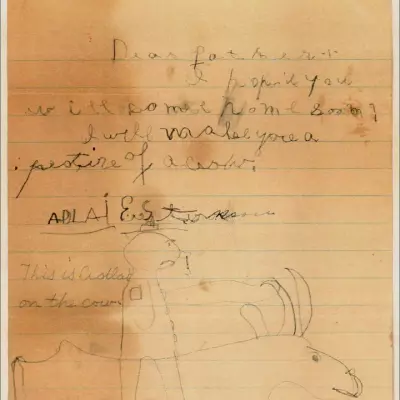 Dear father
I hope you
will come home soon
I will make you a
pesture of a cow.
ADLAI E Stevenson
This is Adlai
on the cown